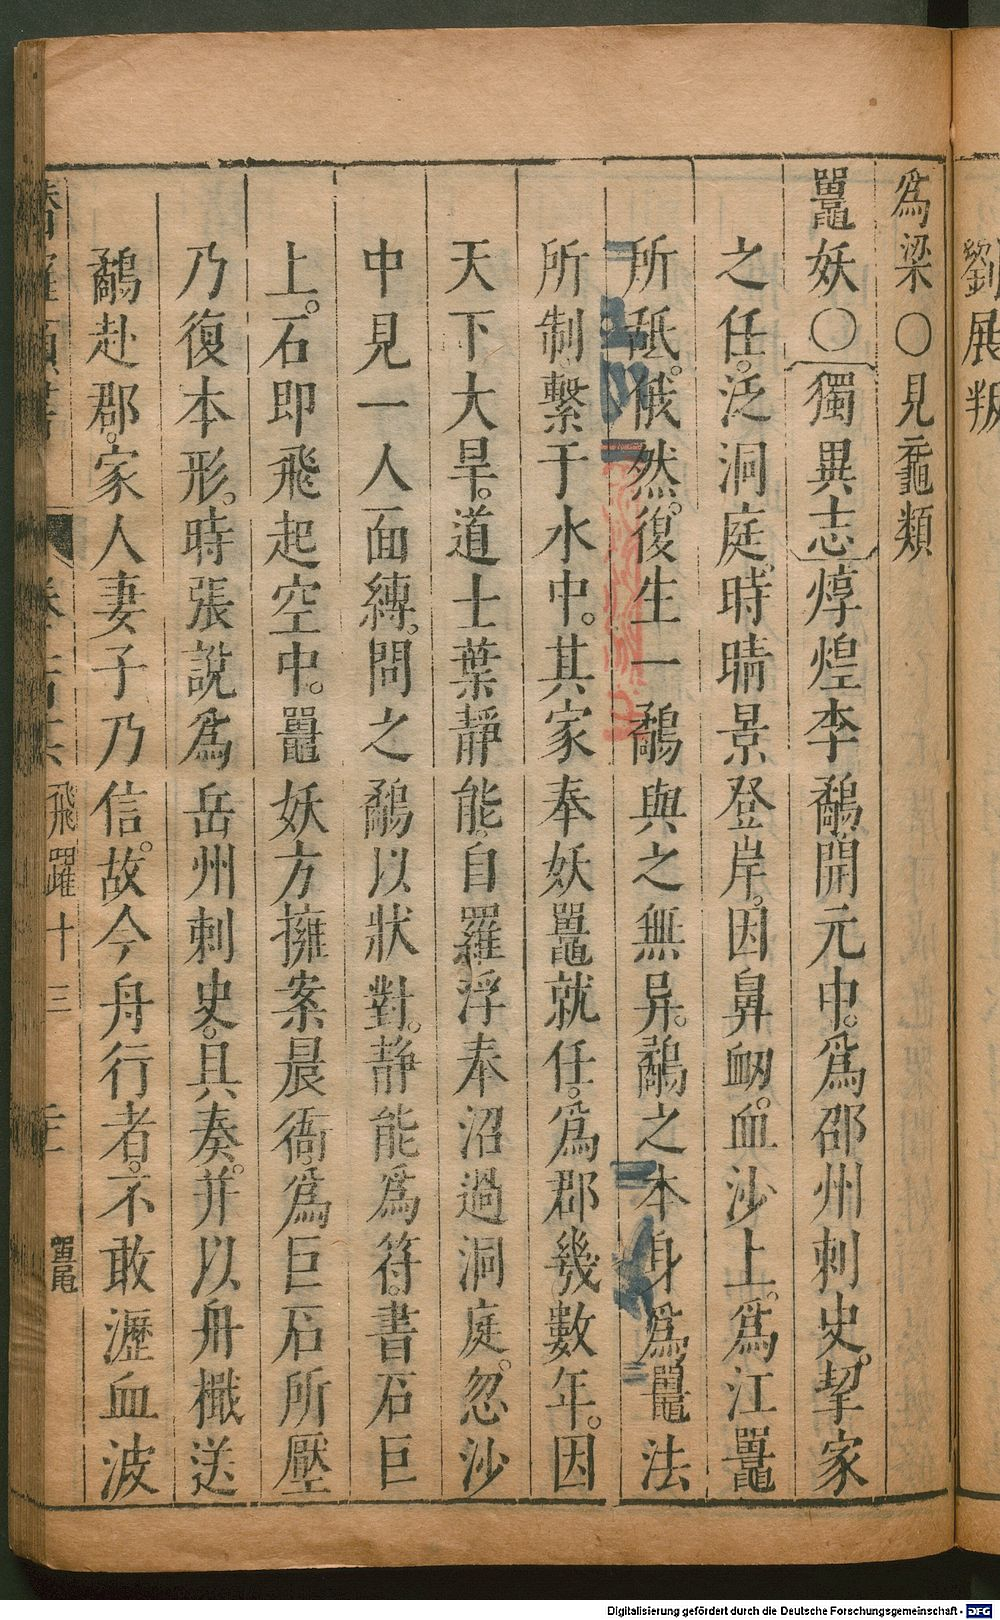 劉展叛
爲梁〇見黿類
鼍妖〇獨異志焞煌李鷸開元中。爲邵州刺史。挈家
之任。泛洞庭。時晴景登岸。因鼻衂。血沙上。爲江鼍
所䑛。俄然。復生一鷸與之無异。鷸之本身爲鼍法
所制繫于水中。其家奉妖鼍就任。爲郡幾數年。因
天下大旱。道士葉靜能。自羅浮奉沼過洞庭。忽沙
中見一人面縛。問之鷸以狀對。静能爲符。書石巨
上。石即飛起空中。鼍妖方擁案晨衙。爲巨石所壓
乃復本形。時張說爲岳州刺史。具奏。并以舟檝送
鷸赴郡。家人妻子乃信。故今舟行者。不敢瀝血波
飛躍十三
鼍
Digitalisierung gefördert durch die Deutsche Forschungsgemeinschaft - DFG